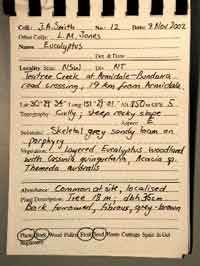 Coll: J.A. Smith No: 12 Date: 9 Nov 2002
Other Colls: L.M. Jones
Name: Eucalyptus
Det & Date
Locality State: NSW Div: NT
Teatree Creek at Armidale-Bundarra
road crossing, 19 km from Armidale.
Lat 30°29' Long 151° Alt 850 m GPS
Topography Gully; steep rocky slope
Aspect: E
Substrate: Skeletal grey sandy loam on
porphyry
Vegetation: Layered Eucalyptus woodland
with Cassinia quinquefaria, Acacia sp.
Themeda australis
Abundance: Common at site, localised
Plant Description: Tree 13 m; dbh 35cm
Bark furrowed, fibrous, grey-brown
Photo Bark Wood Pollen Fruit Seed Photo Cuttings Spirit Si-Gel